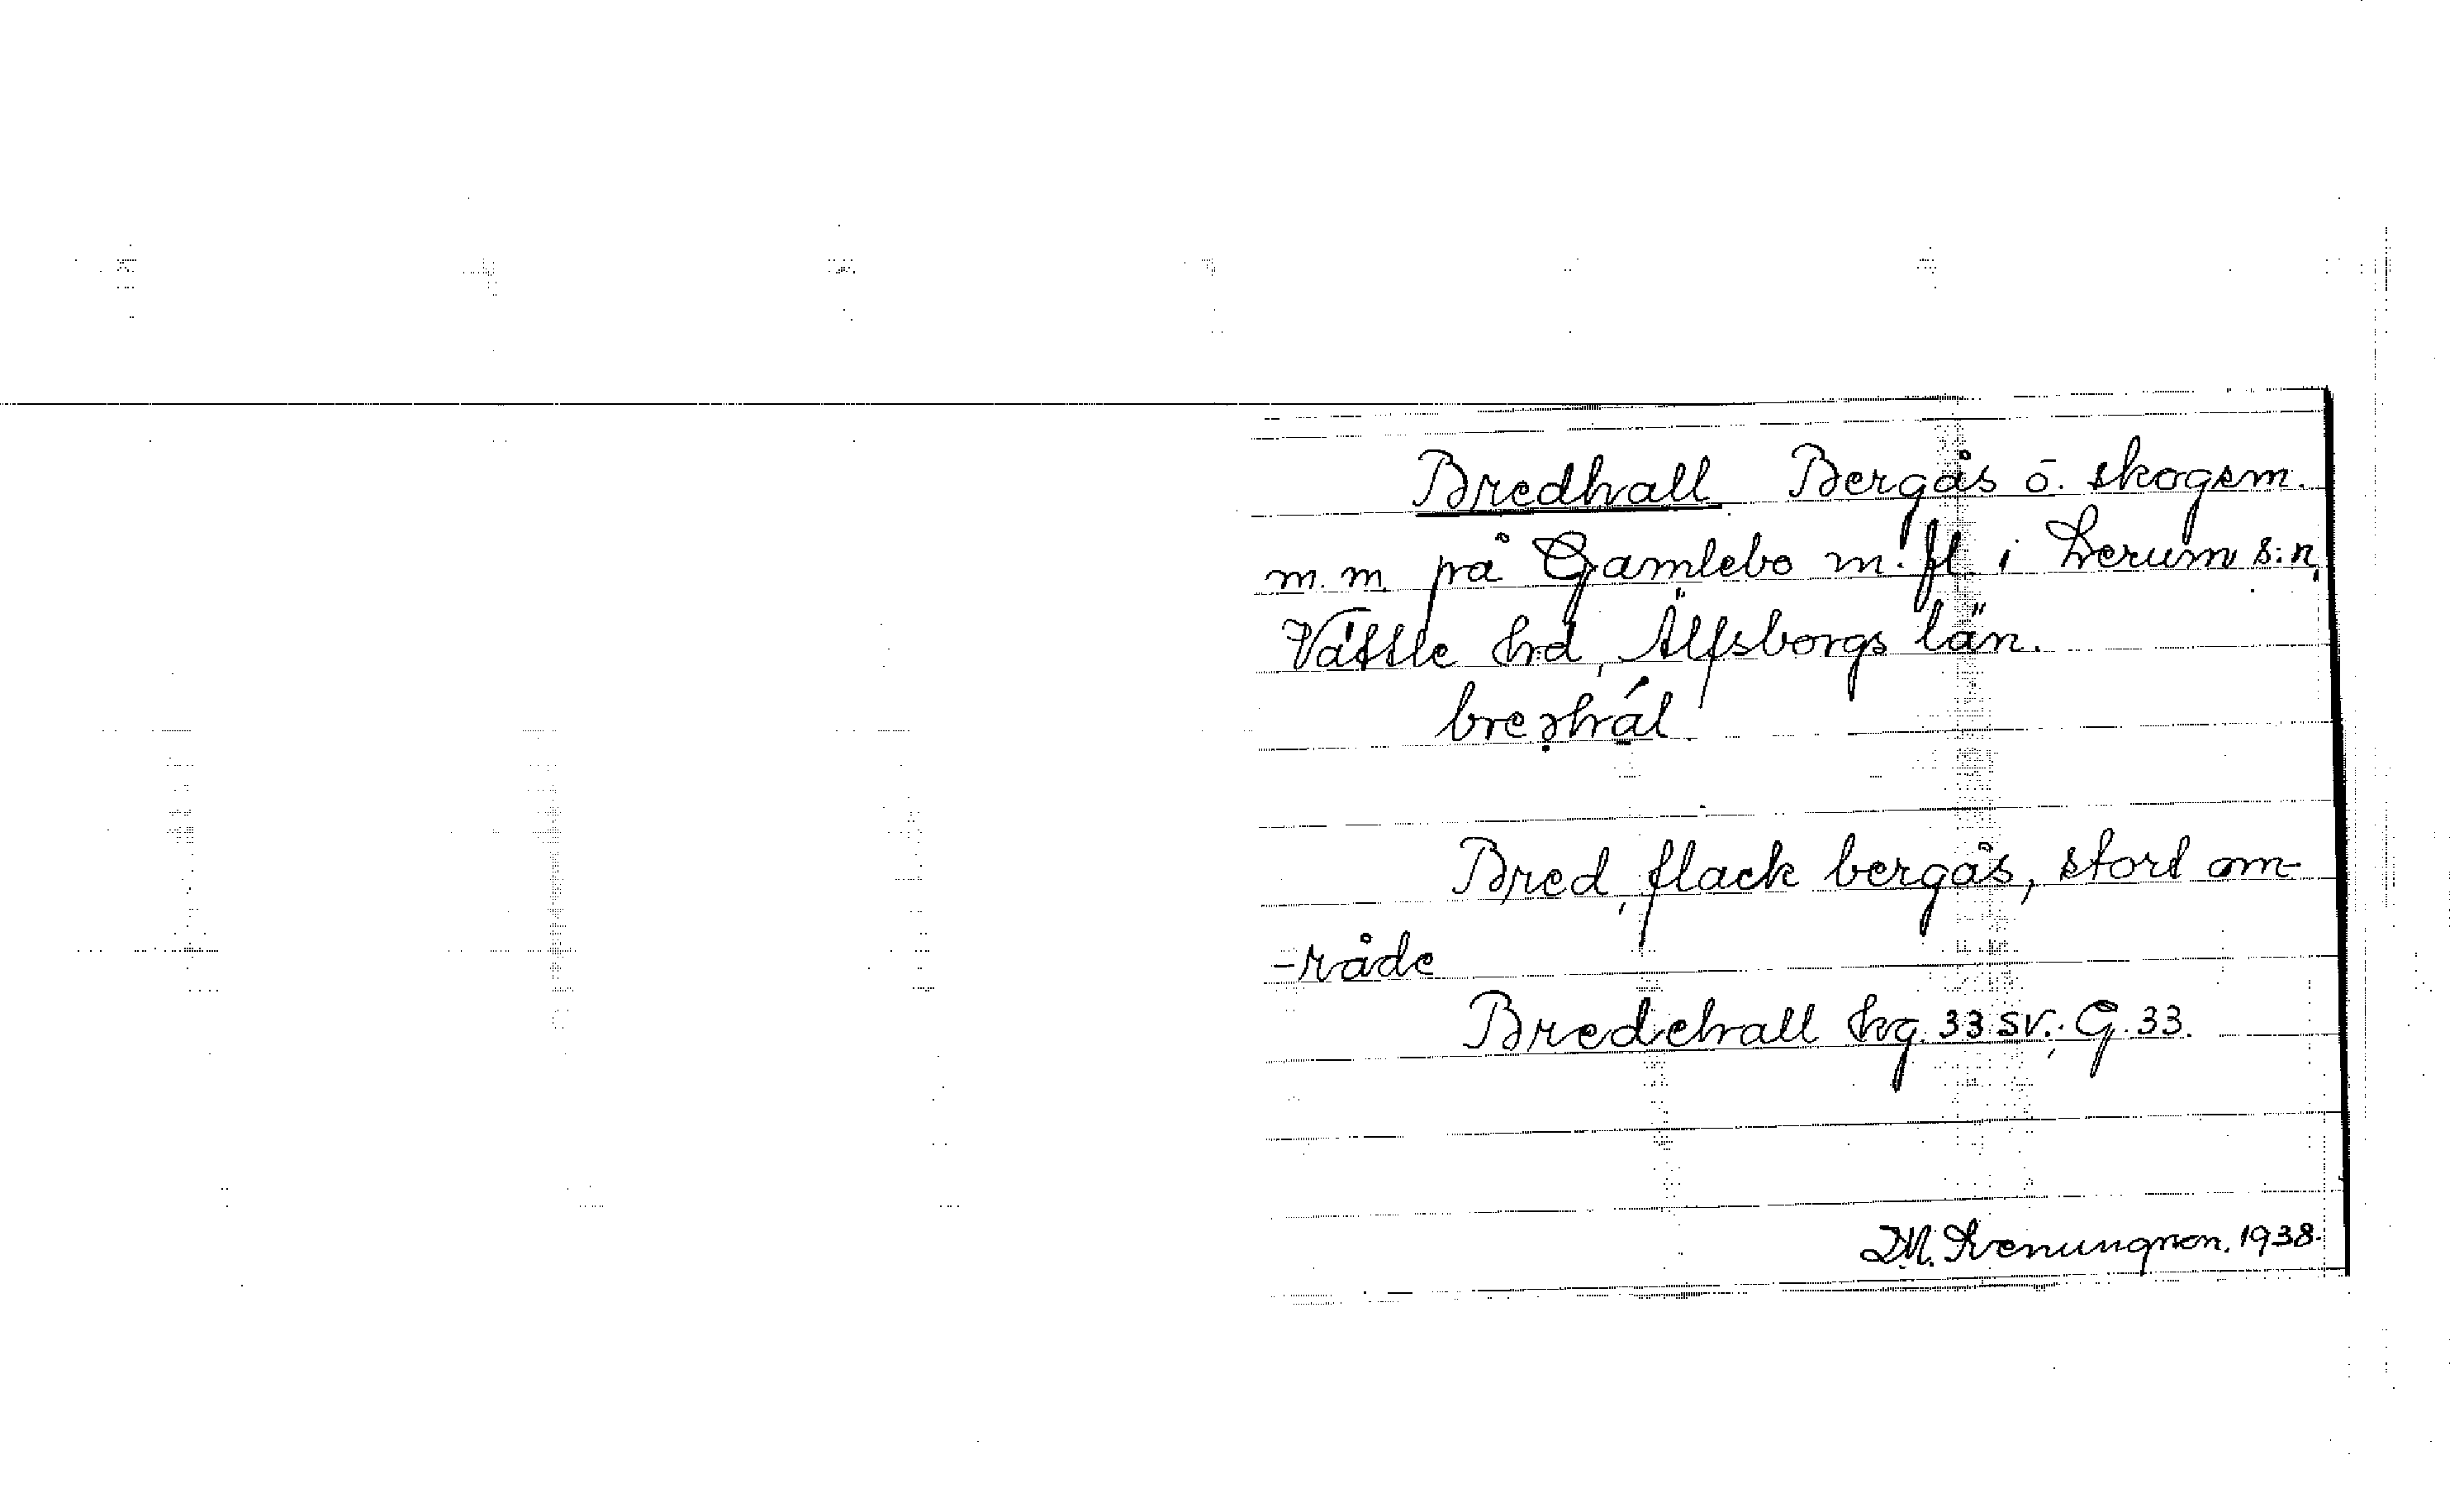 Bredhall Bergås o. skogsm.
m.m. på Gamlebo m. fl. i Lerum s:n,
Vättle hrd, Älfsborgs län.
Bred, flack bergås, stort om-
-råde
Bredehall hg. 33 SV.; G. 33.
1938.